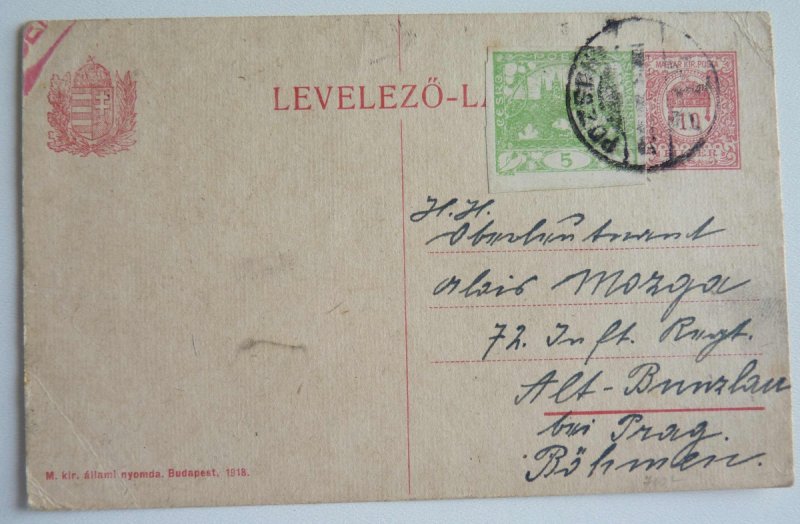 LEVELEZŐ-LA
POSTA
ČESKO
5
MAGYAR KIR. POSTA
10
POZSONY
H. H.
Oberleutnant
Alois Mozga
72. Inft. Regt.
Alt-Bunzlau
bei Prag.
Böhmen.
M. kir. állami nyomda. Budapest, 1918.